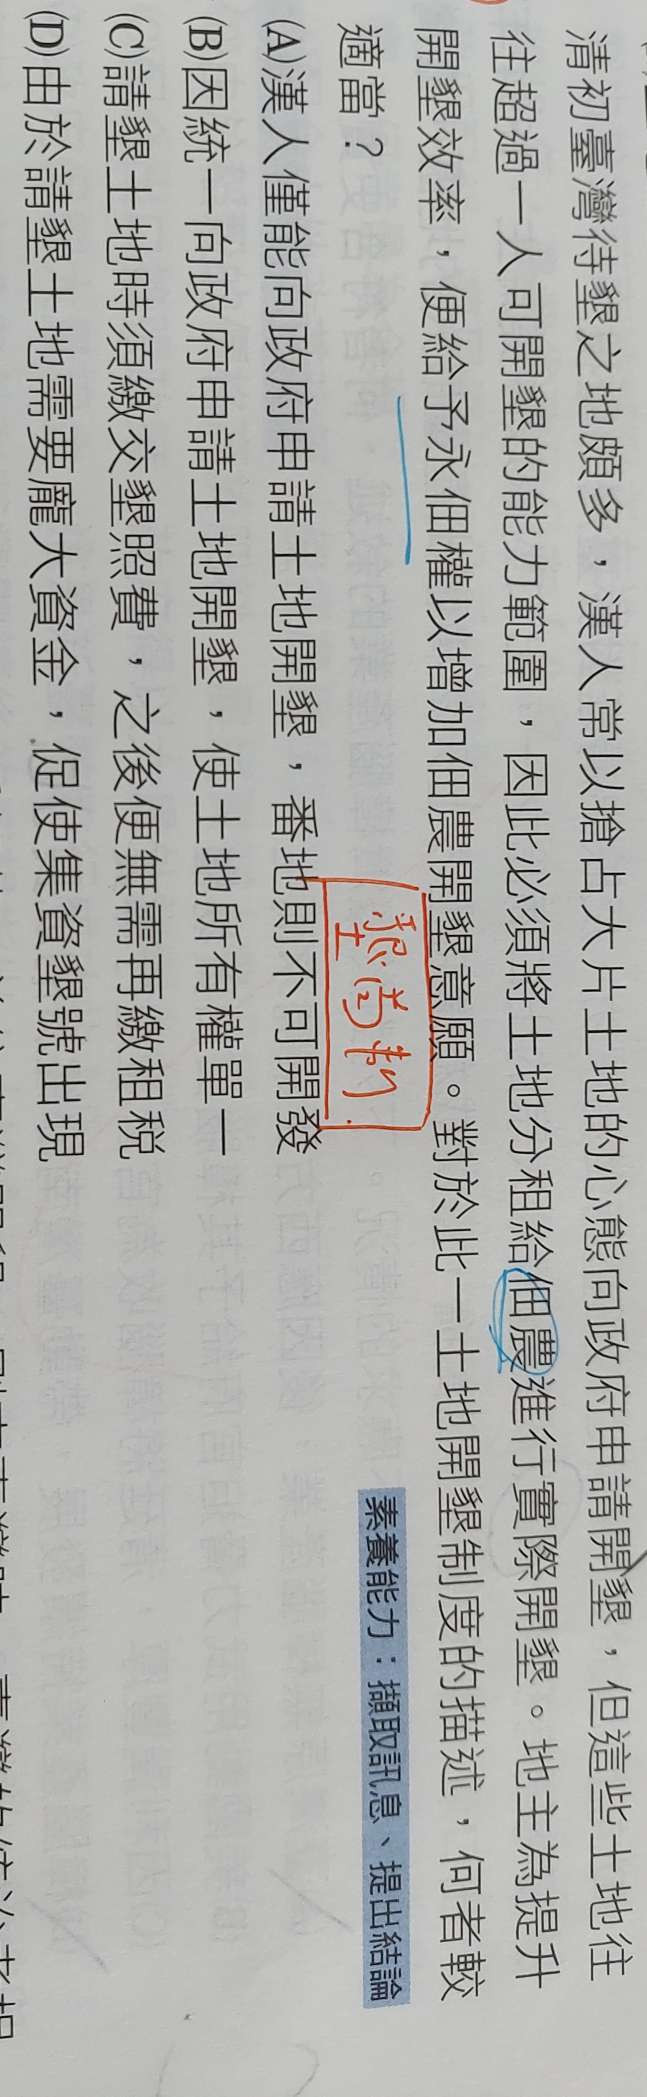 清初臺灣待墾之地頗多，漢人常以搶占大片土地的心態向政府申請開墾，但這些土地往
往超過一人可開墾的能力範圍，因此必須將土地分租給佃農進行實際開墾。地主為提升
開墾效率，便給予永佃權以增加佃農開墾意願。對於此一土地開墾制度的描述，何者較
適當？
墾首制
素養能力：擷取訊息、提出結論
(A)漢人僅能向政府申請土地開墾，番地則不可開發
(B)因統一向政府申請土地開墾，使土地所有權單一
(C)請墾土地時須繳交墾照費，之後便無需再繳租稅
(D)由於請墾土地需要龐大資金，促使集資墾號出現